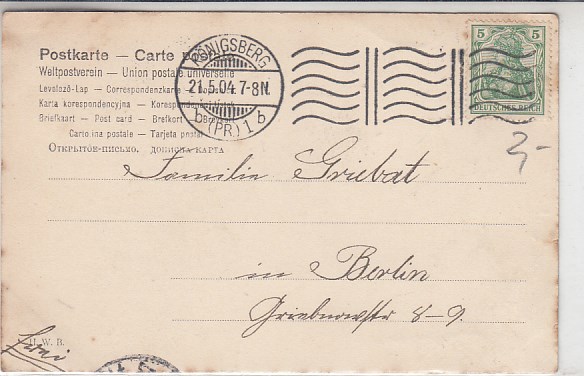 Postkarte — Carte postale
Weltpostverein — Union postale universelle
Levelező-Lap — Correspondenzkarte — Dopisnice
Karta korespondencyjna — Korespondenční lístek
Briefkaart — Post card — Brefkort — Brevkort
Cartolina postale — Tarjeta postal
Открытое письмо. Дописна карта
KÖNIGSBERG
21.5.04.7-8N.
b (PR) 1 b
5 5
DEUTSCHES REICH
3,-
Familie Griebat
in Berlin
Griebnowstr 8-9.
H. W. B.
frei